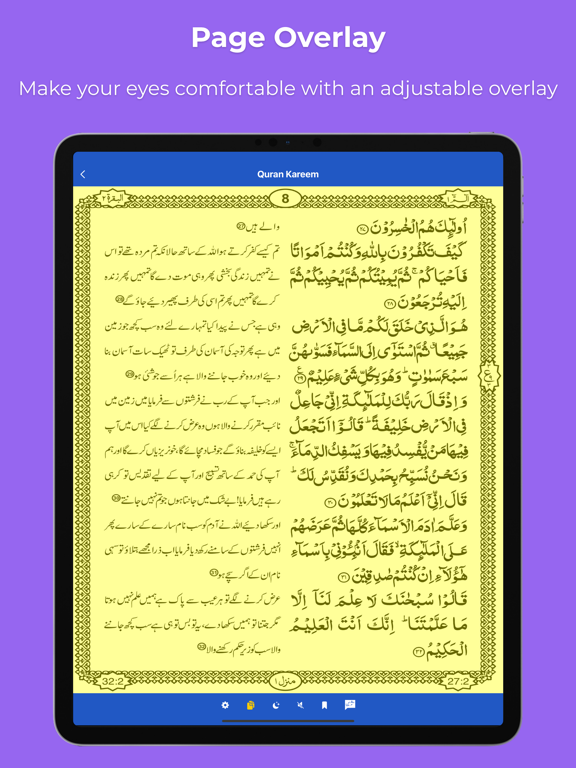 Page Overlay
Make your eyes comfortable with an adjustable overlay
Quran Kareem
الٓمّٓ ١
8
البقرة ٢
اُولٰٓئِكَ هُمُ الْخٰسِرُوْنَ ﴿۲۷﴾
كَيْفَ تَكْفُرُوْنَ بِاللّٰهِ وَكُنْتُمْ اَمْوَاتًا
فَاَحْيَاكُمْ ۚ ثُمَّ يُمِيْتُكُمْ ثُمَّ يُحْيِيْكُمْ ثُمَّ
اِلَيْهِ تُرْجَعُوْنَ ﴿۲۸﴾
هُوَ الَّذِيْ خَلَقَ لَكُمْ مَّا فِي الْاَرْضِ
جَمِيْعًا ۗ ثُمَّ اسْتَوٰٓى اِلَى السَّمَآءِ فَسَوّٰىهُنَّ
سَبْعَ سَمٰوٰتٍ ؕ وَهُوَ بِكُلِّ شَيْءٍ عَلِيْمٌ ﴿۲۹﴾
وَاِذْ قَالَ رَبُّكَ لِلْمَلٰٓئِكَةِ اِنِّيْ جَاعِلٌ
فِي الْاَرْضِ خَلِيْفَةً ؕ قَالُوْٓا اَتَجْعَلُ
فِيْهَا مَنْ يُّفْسِدُ فِيْهَا وَيَسْفِكُ الدِّمَآءَ ۚ
وَنَحْنُ نُسَبِّحُ بِحَمْدِكَ وَنُقَدِّسُ لَكَ ؕ
قَالَ اِنِّيْٓ اَعْلَمُ مَا لَا تَعْلَمُوْنَ ﴿۳۰﴾
وَعَلَّمَ اٰدَمَ الْاَسْمَآءَ كُلَّهَا ثُمَّ عَرَضَهُمْ
عَلَى الْمَلٰٓئِكَةِ ۙ فَقَالَ اَنْۢبِـُٔوْنِيْ بِاَسْمَآءِ
هٰٓؤُلَآءِ اِنْ كُنْتُمْ صٰدِقِيْنَ ﴿۳۱﴾
قَالُوْا سُبْحٰنَكَ لَا عِلْمَ لَنَآ اِلَّا
مَا عَلَّمْتَنَا ؕ اِنَّكَ اَنْتَ الْعَلِيْمُ
الْحَكِيْمُ ﴿۳۲﴾
والے ہیں ۲۷
تم کیسے کفر کرتے ہو اللہ کے ساتھ حالانکہ تم مردہ تھے تو اس
نے تمہیں زندگی بخشی پھر وہی موت دے گا تمہیں پھر زندہ
کرے گا تمہیں پھر تم اسی کی طرف پھیر دیئے جاؤ گے ۲۸
وہی ہے جس نے پیدا کیا تمہارے لئے وہ سب کچھ جو زمین
میں ہے پھر توجہ کی آسمان کی طرف تو ٹھیک سات آسمان بنا
دیئے اور وہ خوب جاننے والا ہے ہر اُسے جو شئی ہو ۲۹
اور جب آپ کے رب نے فرشتوں سے فرمایا میں زمین میں
نائب مقرر کرنے والا ہوں وہ عرض کرنے لگے کیا اس میں آپ
ایسے کو خلیفہ بناؤ گے جو فساد مچائے گا، خونریزیاں کرے گا اور ہم
آپ کی حمد کے ساتھ تسبیح اور آپ کے لیے تقدیس تو کر ہی
رہے ہیں فرمایا! بے شک میں جانتا ہوں جو تم نہیں جانتے ۳۰
اور سکھا دیئے اللہ نے آدم کو سب نام سارے کے سارے پھر
انہیں فرشتوں کے سامنے رکھ دیا فرمایا اب ذرا مجھے بتلاؤ تو سہی
نام ان کے اگر سچے ہو ۳۱
عرض کرنے لگے تو ہر عیب سے پاک ہے ہمیں علم نہیں ہوتا
مگر جتنا تو ہمیں سکھا دے، یہ تو بس تو ہی ہے سب کچھ جاننے
والا سب کو زیر حکم رکھنے والا ۳۲
ع
27:2
منزل ١
32:2